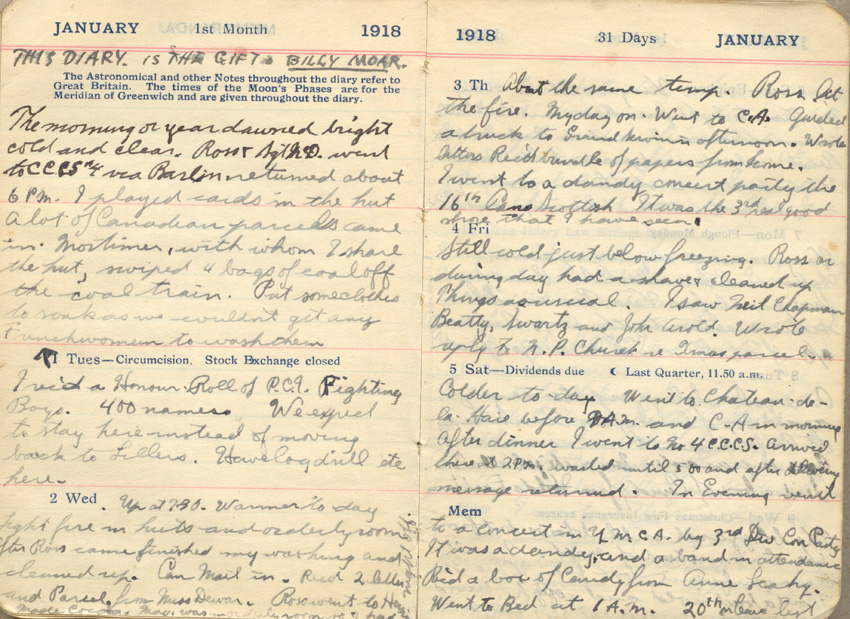 JANUARY 1st Month 1918
THIS DIARY. IS THE GIFT OF BILLY MOAR.
The Astronomical and other Notes throughout the diary refer to
Great Britain. The times of the Moon's Phases are for the
Meridian of Greenwich and are given throughout the diary.
The morning of year dawned bright
cold and clear. Ross & Sgt McD. went
to CCCS No 4 via Barlin returned about
6 P.M. I played cards in the hut
A lot of Canadian parcels came
in. Mortimer, with whom I share
the hut, swiped 4 bags of coal off
the coal train. Put some clothes
to soak as we couldn't get any
Frenchwomen to wash them
1 Tues—Circumcision. Stock Exchange closed
I rec'd a Honour Roll of P.C.I. Fighting
Boys. 400 names. We expect
to stay here instead of moving
back to Lillers. Have log drill etc
here.
2 Wed. Up at 7.30. Warmer to day
light fire in huts and orderly room
After Ross came finished my washing and
cleaned up. Can Mail in. Recd 2 letters
and Parcel from Miss Dewar. Ross went to
made cocoa. May was in orderly room
1918 31 Days JANUARY
3 Th About the same temp. Ross let
the fire. My day on. Went to C.A. Guided
a truck to in afternoon. Wrote
letters Rec'd bundle of papers from home.
I went to a dandy concert party the
16th Cana Scottish It was the 3rd real good
show that I have seen.
4 Fri
Still cold just below freezing. Ross on
during day had a shave & cleaned up
Things as usual. I saw Neil Chapman
Beatty, Swartz and John Wrote
reply to N.P. Church re Xmas parcel.
5 Sat—Dividends due ☾ Last Quarter, 11.50 a.m.
Colder to-day Went to Chateau-de-
la-Haie before 9 A.M. and C-A in morning
After dinner I went to No 4 C.C.C.S. arrived
there at 2 P.M. waited until 5 00 and after
message returned. In Evening went
Mem
to a concert in Y M C A. by 3rd Div Con Party
It was a dandy, and a band in attendance
Rec'd a box of Candy from Anne Leahy.
Went to Bed at 1 A.M. 20th on leave list